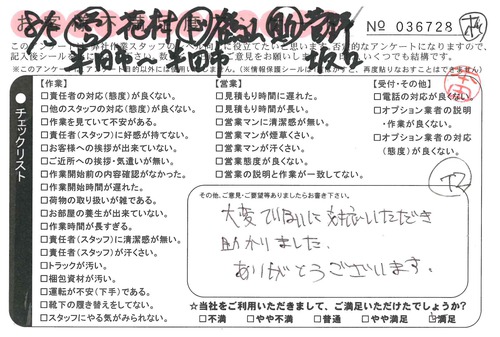 No 036728
※このアンケート
(※情報保護シールに
再度貼りなおすことはできません)
チェックリスト
【作業】
□責任者の対応(態度)が良くない。
□他のスタッフの対応(態度)が良くない。
□作業を見ていて不安がある。
□責任者(スタッフ)に好感が持てない。
□お客様への挨拶が出来ていない。
□ご近所への挨拶・気遣いが無い。
□作業開始前の内容確認がなかった。
□作業開始時間が遅れた。
□荷物の取り扱いが雑である。
□お部屋の養生が出来ていない。
□作業時間が長すぎる。
□責任者(スタッフ)に清潔感が無い。
□責任者(スタッフ)が汗くさい。
□トラックが汚い。
□梱包資材が汚い。
□運転が不安(下手)である。
□靴下の履き替えをしてない。
□スタッフにやる気がみられない。
【営業】
□見積もり時間に遅れた。
□見積もり時間が長い。
□営業マンに清潔感が無い。
□営業マンが煙草くさい。
□営業マンが汗くさい。
□営業態度が良くない。
□営業の説明と作業が一致してない。
【受付・その他】
□電話の対応が良くない。
□オプション業者の説明
・作業が良くない。
□オプション業者の対応
(態度)が良くない。
その他、ご意見・ご要望等ありましたらお書き下さい。
大変ていねいに対応いただき
助かりました。
ありがとうございます。
☆当社をご利用いただきまして、ご満足いただけたでしょうか?
□不満 □やや不満 □普通 □やや満足 ☑満足